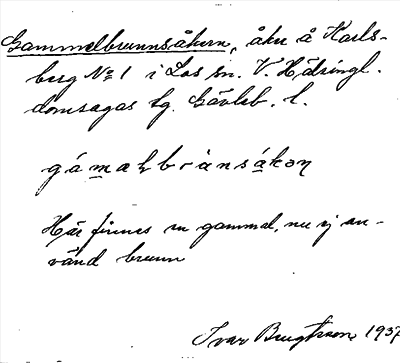 Gammelbrunnsåkern, åker å Karls-
berg No 1 i Los sn. V. Hälsingl.
domsagas tg. Gävleb. l.
gámalbrànsákøn
Här finnes en gammal, nu ej an-
vänd brunn
Ivar 1937